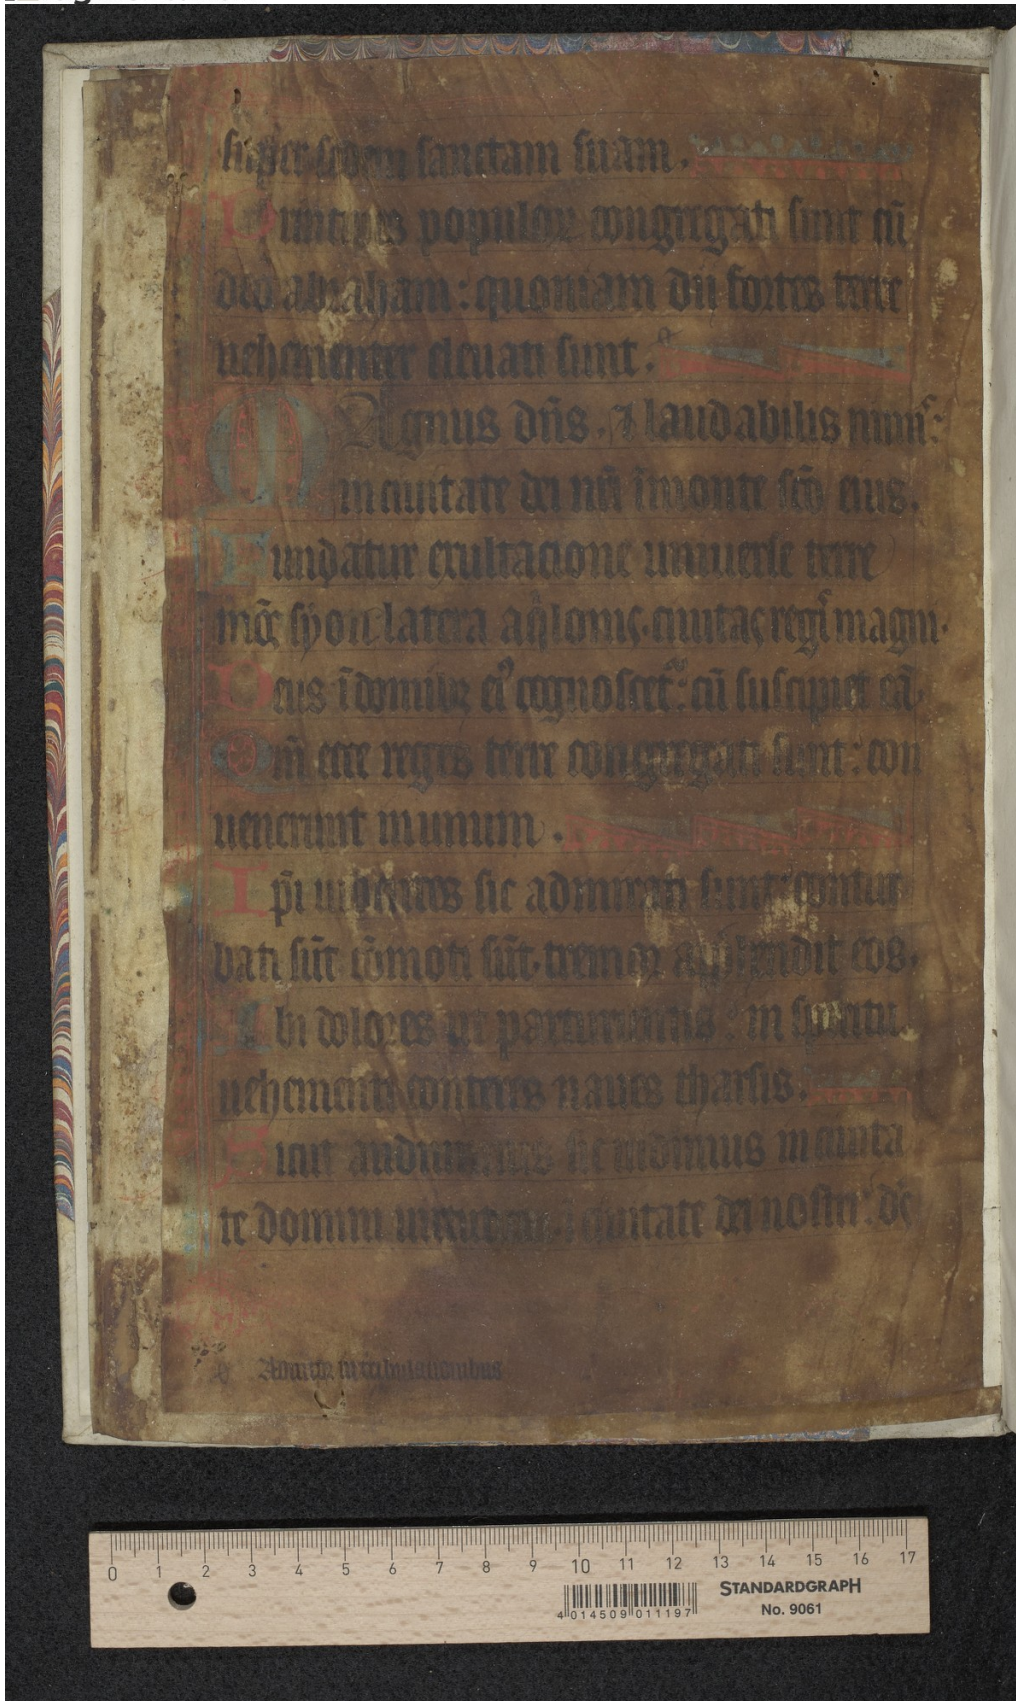 super sedem sanctam suam.
Principes populoꝝ congregati sunt cū
deo abraham: quoniam dii fortes terre
uehementer eleuati sunt.
MAgnus dn̄s. ⁊ laudabilis nimis:
in ciuitate dei nr̄i ī monte scō eius.
Fundatur exultacione uniuerse terre
mōs syon latera aqͥlonis. ciuitas regͥ magni.
Deus ī domibꝫ eiꝰ cognoscetᷣ: cū suscipiet eā
Qm̄ ecce reges terre congregati sunt: con
uenerunt in unum.
Ipi uidentes sic admirati sunt contur
bati sūt cōmoti sūt. tremor apprehendit eos.
Ibi dolores ut parturientis: in spiritu
uehementi conteres naues tharsis.
Sicut audiuimus sic uidimus in ciuita
te domini uirtutum. ī ciuitate dei nostri: ds̄
Adiutor in tribulationibus
0 1 2 3 4 5 6 7 8 9 10 11 12 13 14 15 16 17
STANDARDGRAPH
No. 9061
4 014509 011197